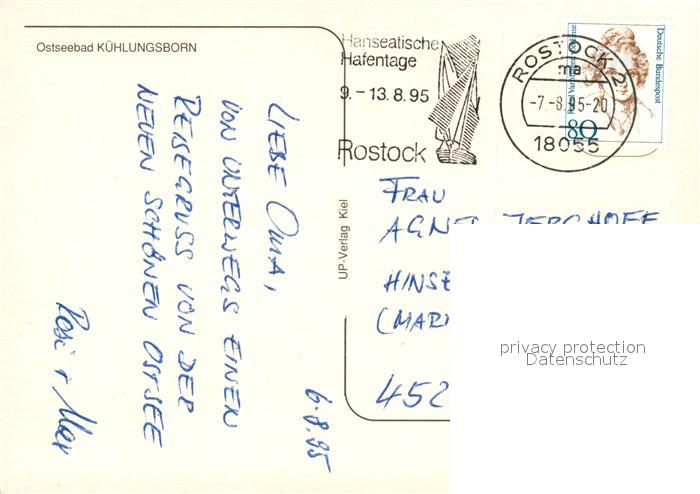 Ostseebad KÜHLUNGSBORN
Hanseatische
Hafentage
9.–13.8.95
Rostock
ROSTOCK 2
ma
-7.-8.95-20
18055
Deutsche Bundespost
80
6.8.95
LIEBE OMA,
VON UNTERWEGS EINEN
REISEGRUSS VON DER
NEUEN SCHÖNEN OSTSEE
Rosi + Max
UP-Verlag Kiel
FRAU
HINSE
(MARI
452
privacy protection
Datenschutz